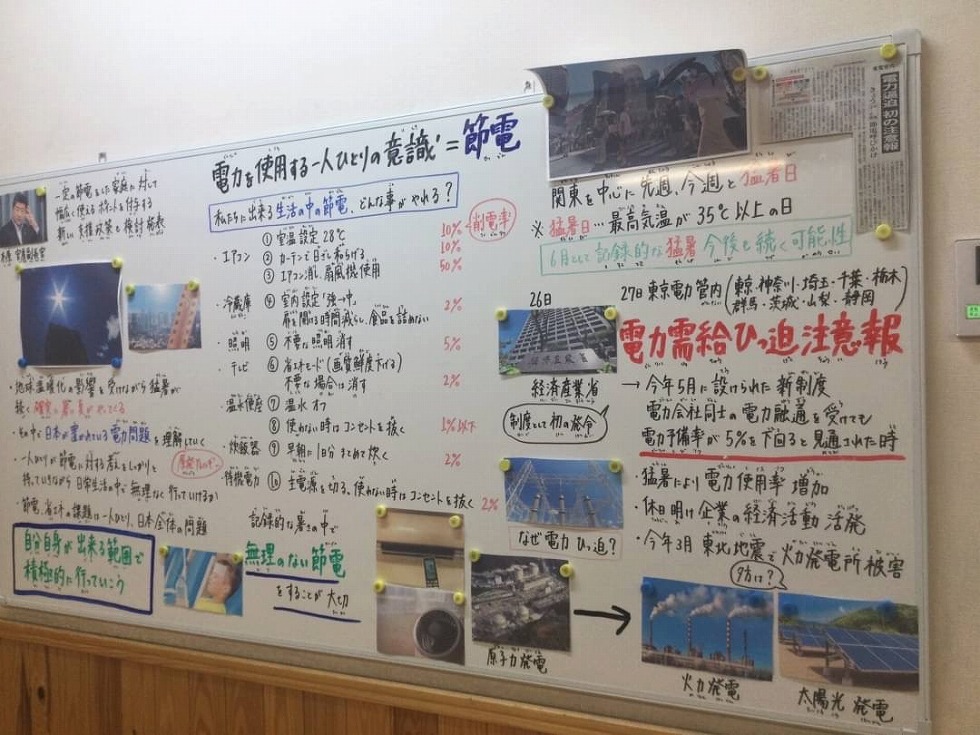 電力を使用する一人ひとりの意識=節電
私たちに出来る生活の中の節電、どんな事がやれる?
削電率
・エアコン
① 室温設定 28℃ 10%
② カーテンで日ざし和らげる 10%
③ エアコン消し、扇風機使用 50%
・冷蔵庫
④ 室内設定「強→中」 2%
扉を開ける時間減らし、食品を詰めない
・照明
⑤ 不要な照明消す 5%
・テレビ
⑥ 省エネモード(画質鮮度下げる) 2%
不要な場合は消す
・温水便座
⑦ 温水オフ
⑧ 使わない時はコンセントを抜く 1%以下
・炊飯器
⑨ 早朝に1日分まとめて炊く 2%
・待機電力
⑩ 主電源を切る。使わない時はコンセントを抜く 2%
記録的な暑さの中で
無理のない節電
をすることが大切
一定の節電をした家庭に対して
幅広く使えるポイントを付与する
新しい支援政策を検討発表
・地球温暖化の影響を受けながら猛暑が
続く確実に暑い夏がやってくる
・その中で日本が置かれている電力問題を理解していく
・一人ひとりが節電に対する考えをしっかりと
持っていきながら日常生活の中で無理なく行っていけるか
・節電、省エネの課題は一人ひとり、日本全体の問題
自分自身が出来る範囲で
積極的に行っていこう
電力逼迫 初の注意報
関東を中心に先週、今週と猛暑日
※猛暑日…最高気温が35℃以上の日
6月として記録的な猛暑 今後も続く可能性
26日
経済産業省
制度として初の発令
27日 東京電力管内(東京・神奈川・埼玉・千葉・栃木
群馬・茨城・山梨・静岡)
電力需給ひっ迫注意報
→今年5月に設けられた新制度
電力会社同士の電力融通を受けても
電力予備率が5%を下回ると見通された時
なぜ電力ひっ迫?
・猛暑により電力使用率増加
・休日明け企業の経済活動 活発
・今年3月 東北地震で火力発電所被害
原子力発電
火力発電
太陽光発電